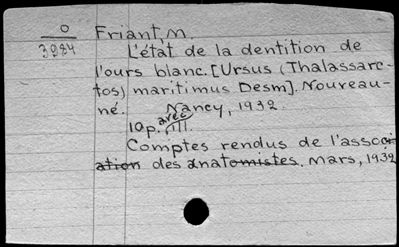 O Friant, M.
3984 L'état de la dentition de
l'ours blanc. [Ursus (Thalassarc-
tos) maritimus Desm]. Nouveau-
né. Nancy, 1932.
10p. avec ill.
Comptes rendus de l'associ-
ation des anatomistes. Mars, 1932